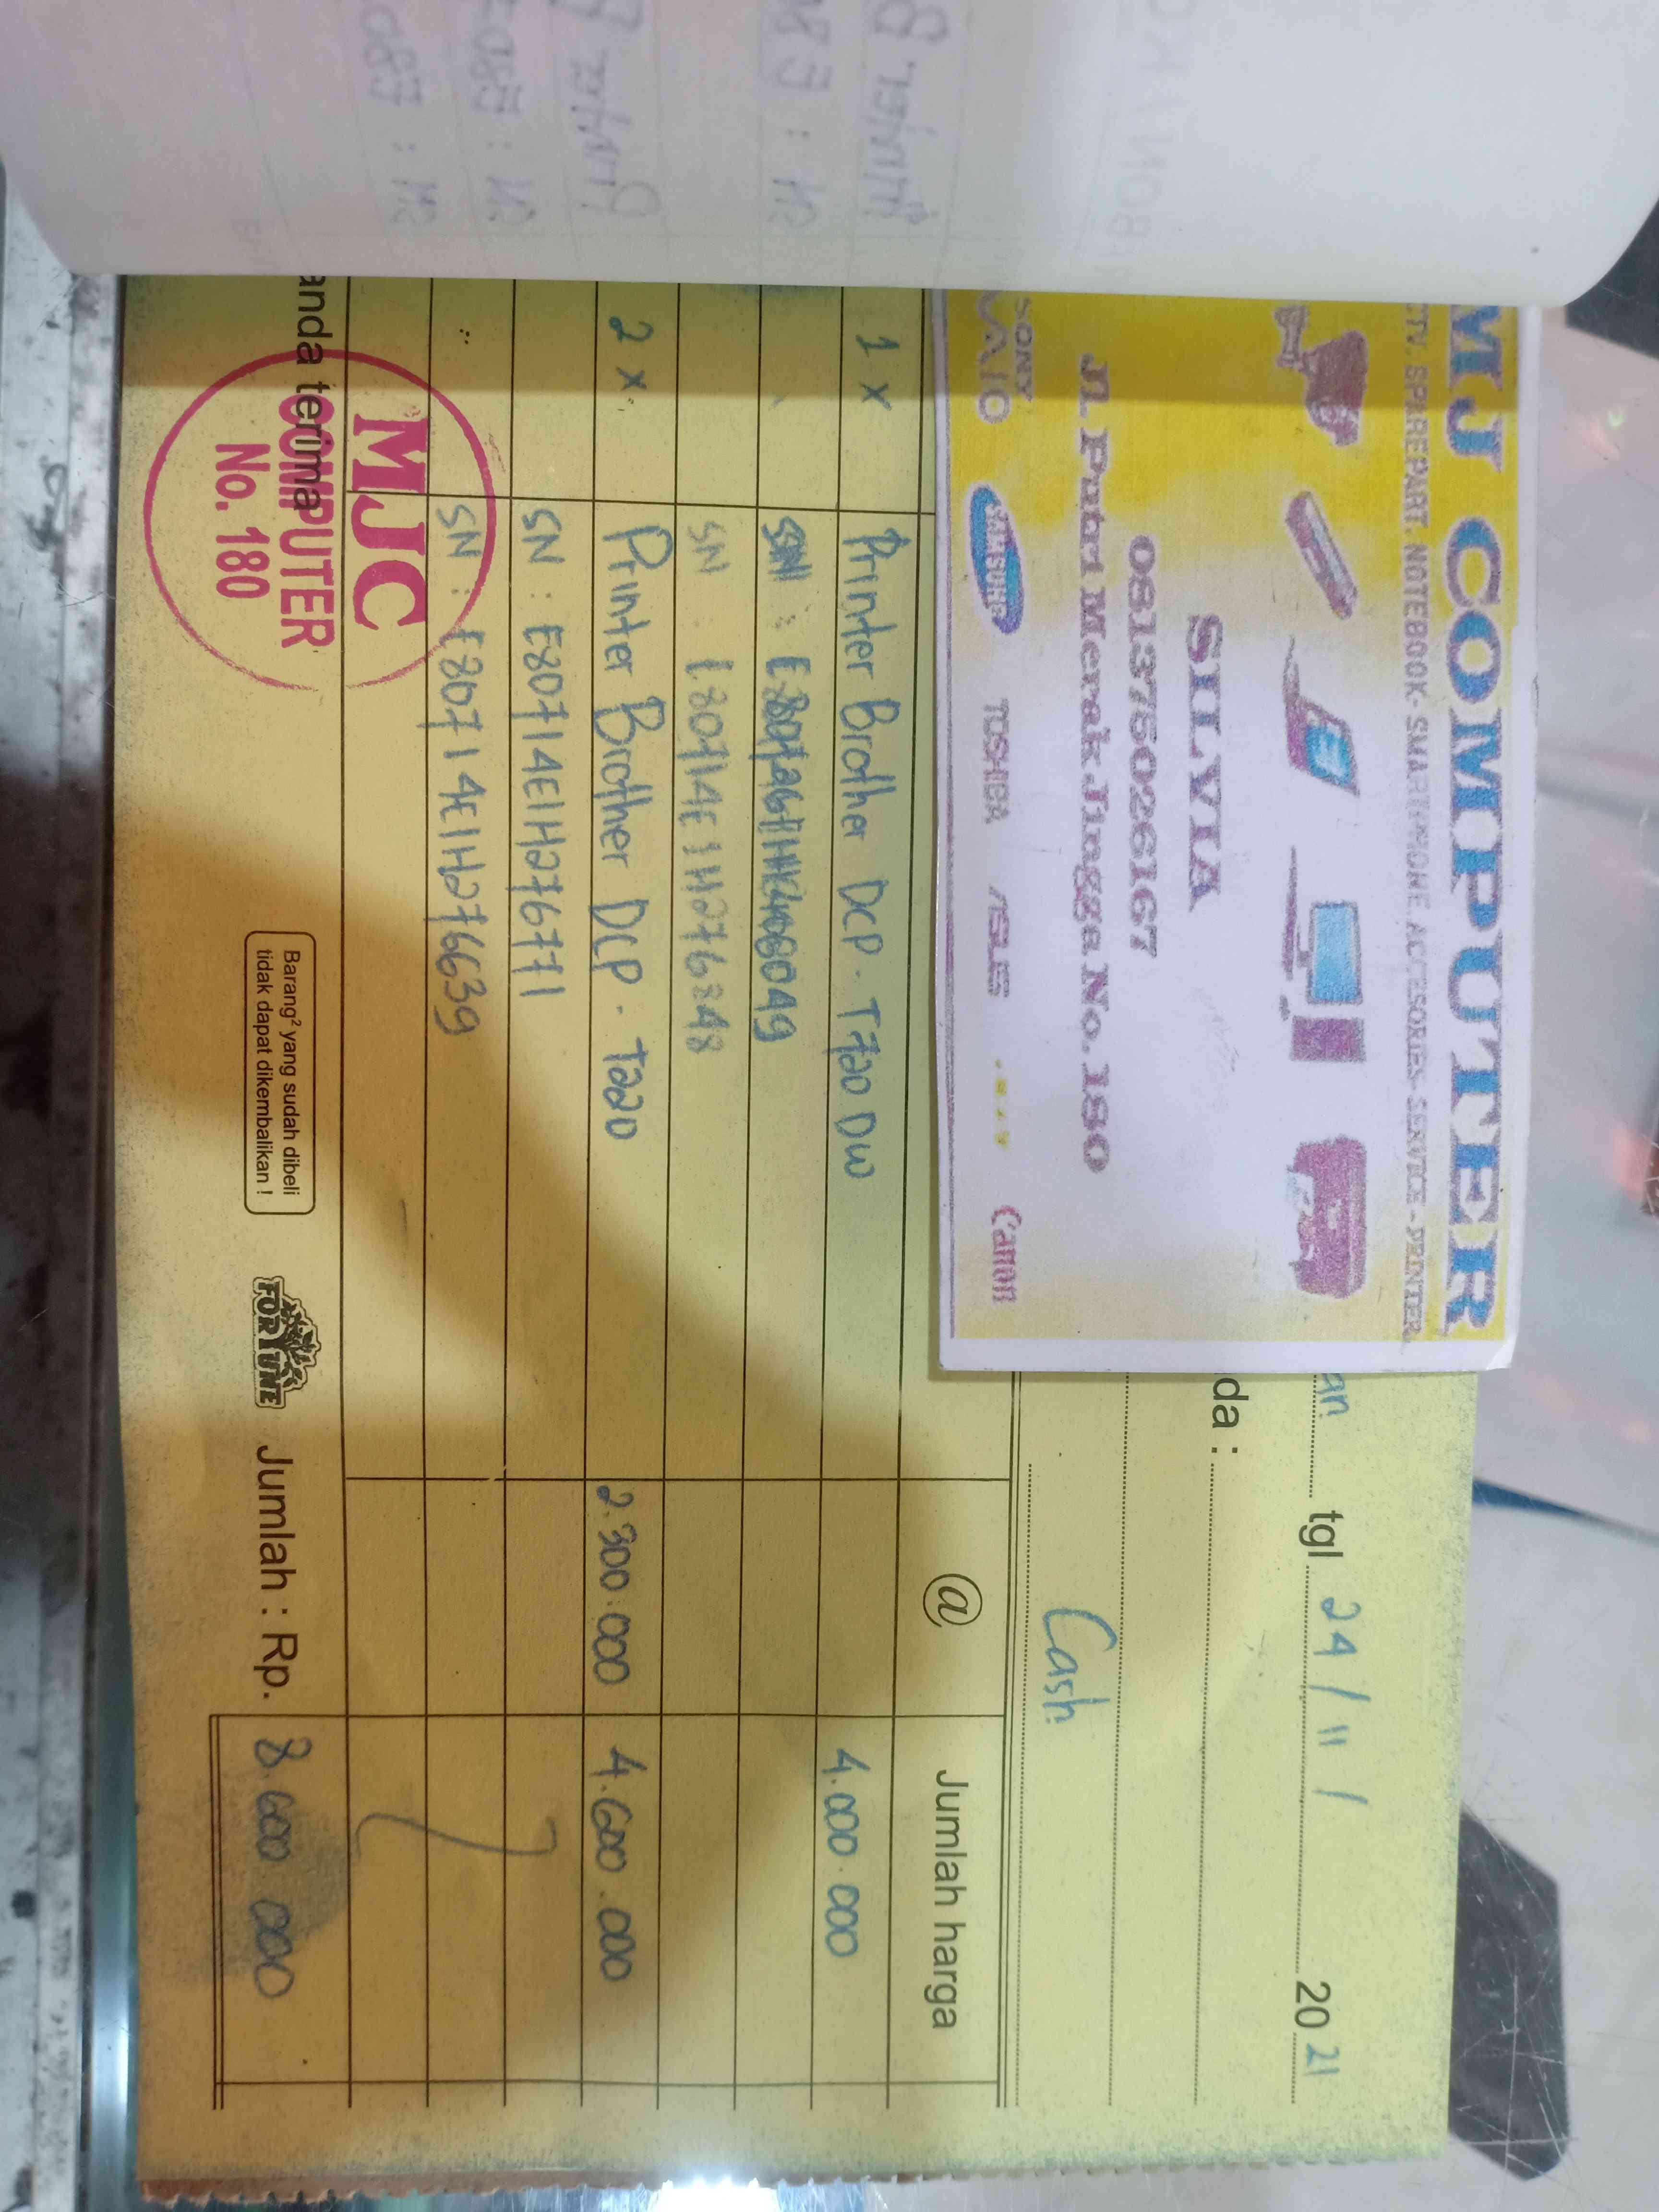 MJ COMPUTER
CTV. SPAREPART. NOTEBOOK- SMARTPHONE. ACCESORIES- SERVICE - PRINTER.
SILVIA
081375026167
Jl. Putri Merak Jingga No. 180
SONY
VAIO
SAMSUNG
TOSHIBA
ASUS
Canon
an tgl 24 / 11 / 20 21
da :
Cash
@ Jumlah harga
1 x Printer Brother DCP - T720 DW 4.000.000
SN
SN : E80714E1H276248
2 x Printer Brother DCP - T220 2.300.000 4.600.000
SN : E80714E1H276771
SN : E80714E1H276639
anda terima
MJC
COMPUTER
No. 180
Barang² yang sudah dibeli
tidak dapat dikembalikan !
FORTUNE
Jumlah : Rp. 8.600 000